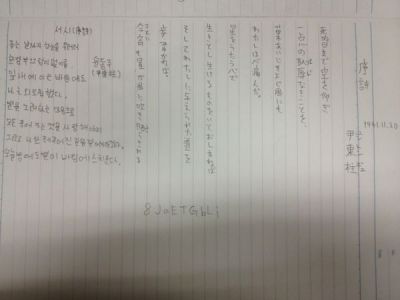 序詩
1941.11.20
尹東柱
死ぬ日まで空を仰ぎ
一点の恥辱なきことを、
葉あいにそよぐ風にも
わたしは心痛んだ。
星をうたう心で
生きとし生けるものをいとおしまねば
そしてわたしに与えられた道を
歩みゆかねば。
今宵も星が風に吹き晒らされる
서시(序詩)
윤동주
(尹東柱)
죽는 날까지 하늘을 우러러
한점 부끄럼이 없기를
잎새에 이는 바람에도
나는 괴로워했다.
별을 노래하는 마음으로
모든 죽어가는 것을 사랑해야지
그리고 나한테 주어진 길을 걸어가야겠다.
오늘 밤에도 별이 바람에 스치운다.
8JaETGbLi